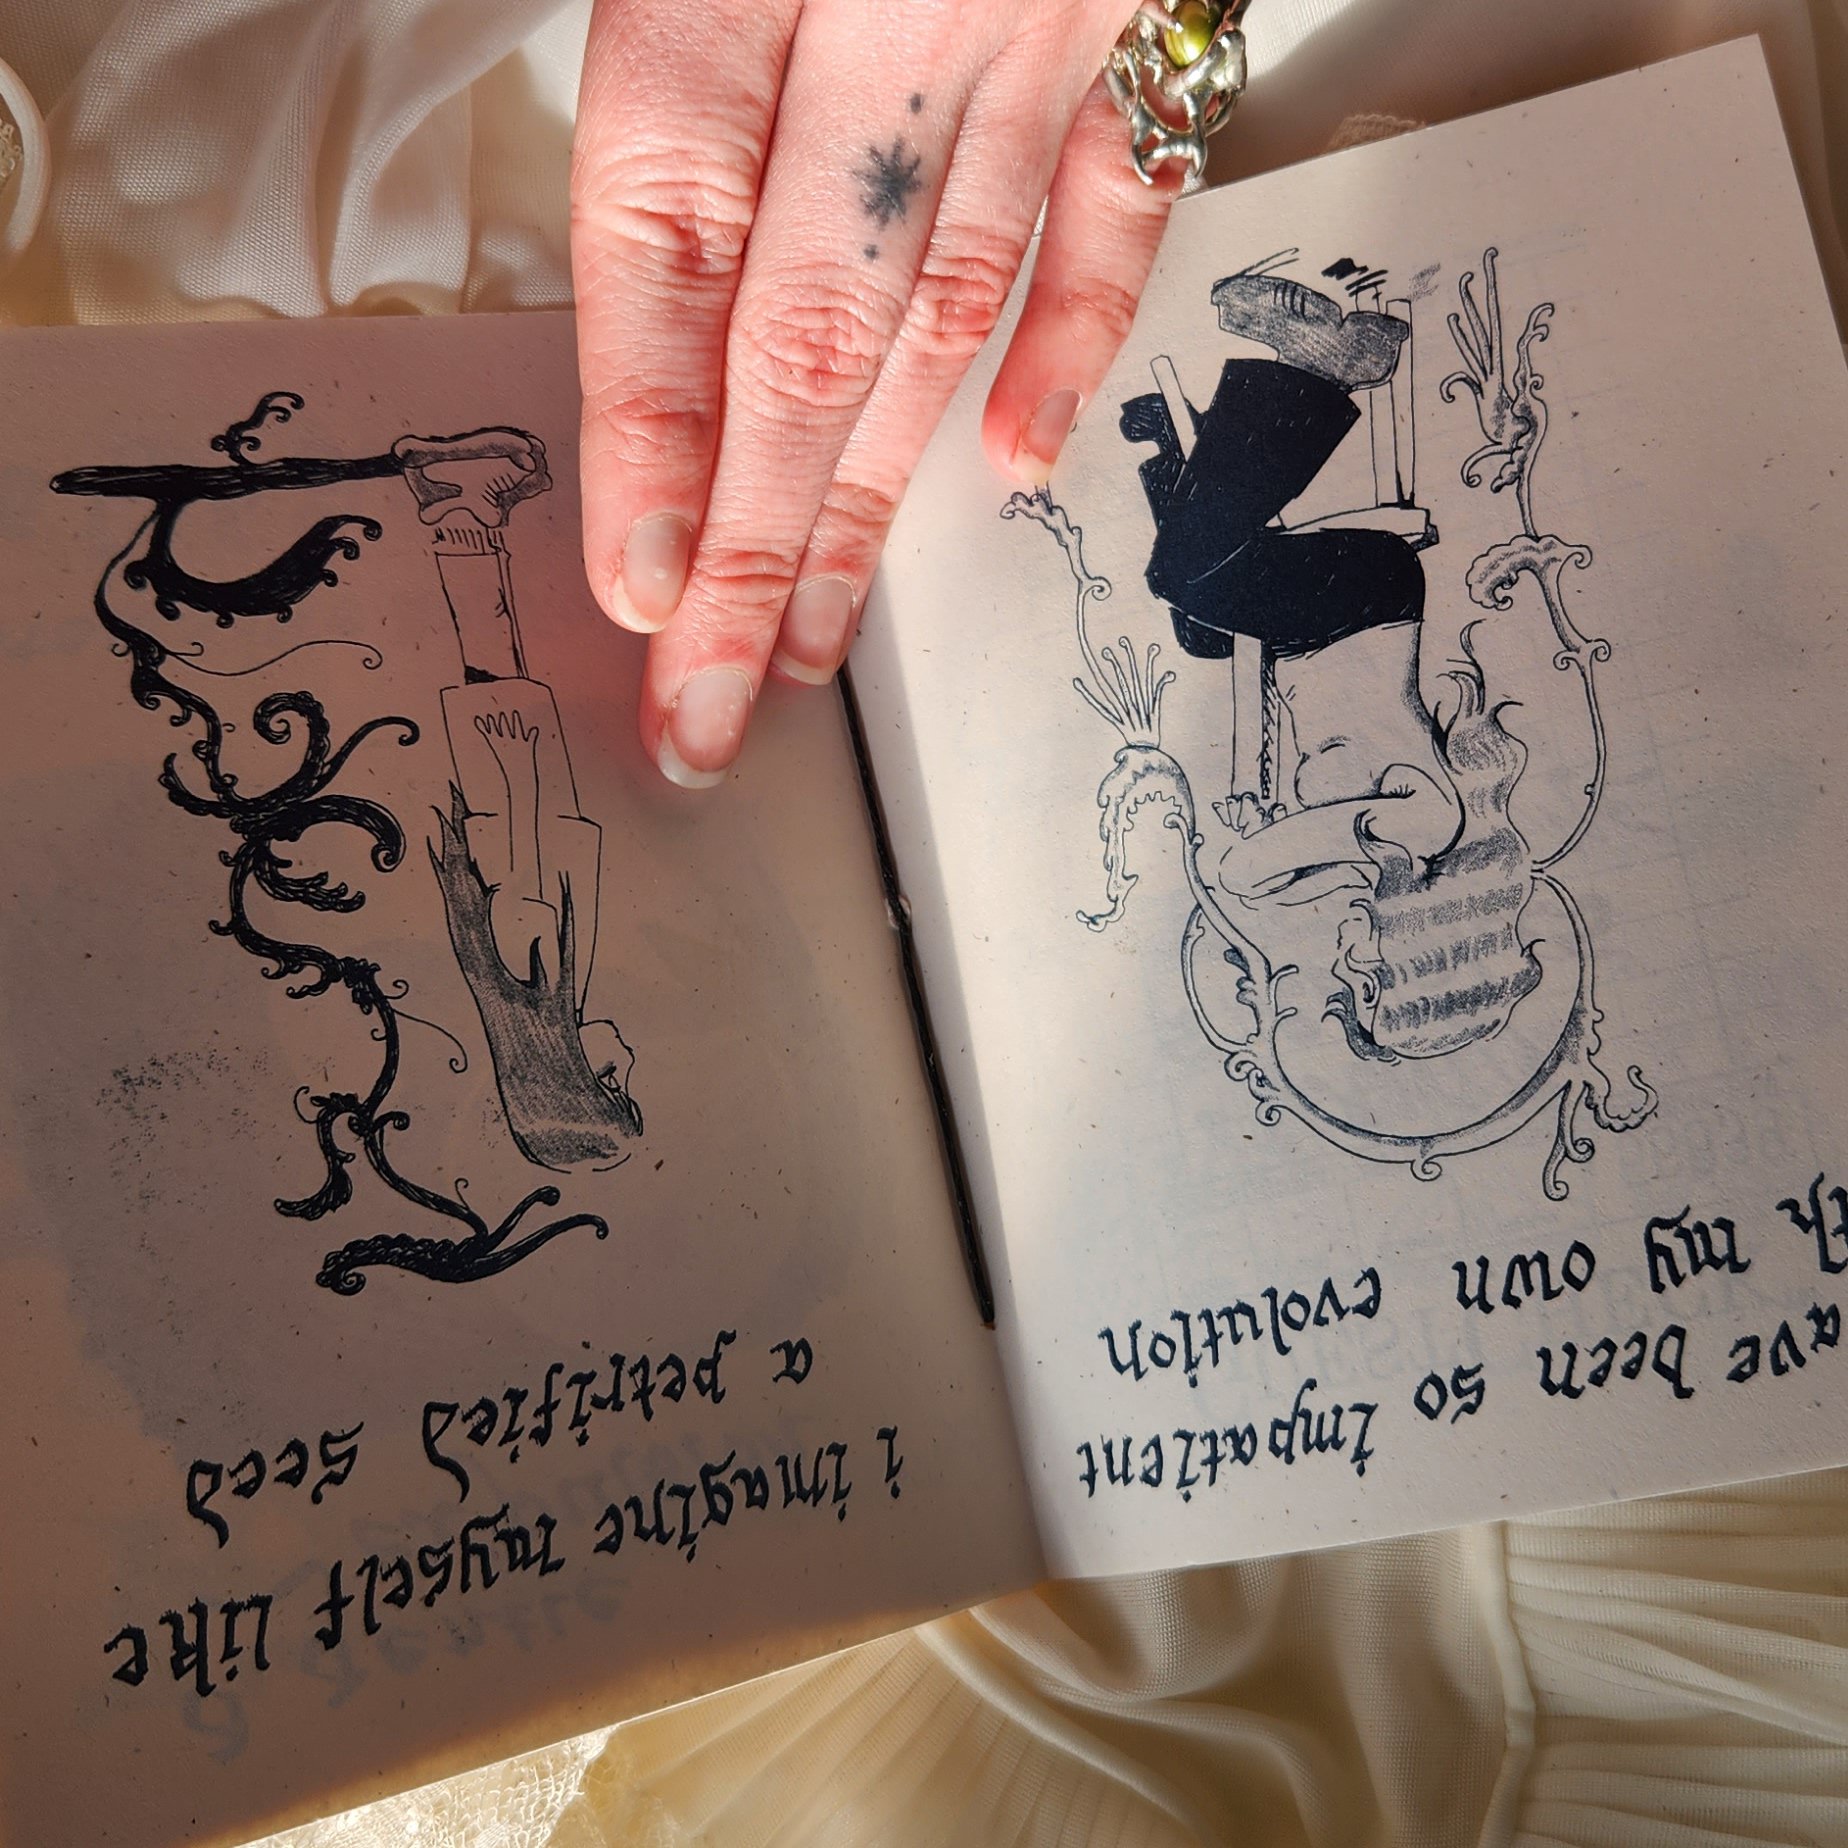 ave been so impatient
th my own evolution
i imagine myself like
a petrified seed